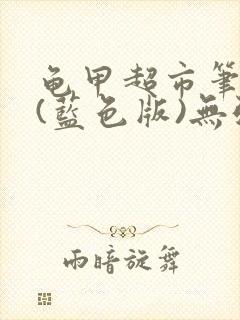 龟甲超市筆
(藍色版)無
雨暗旋舞